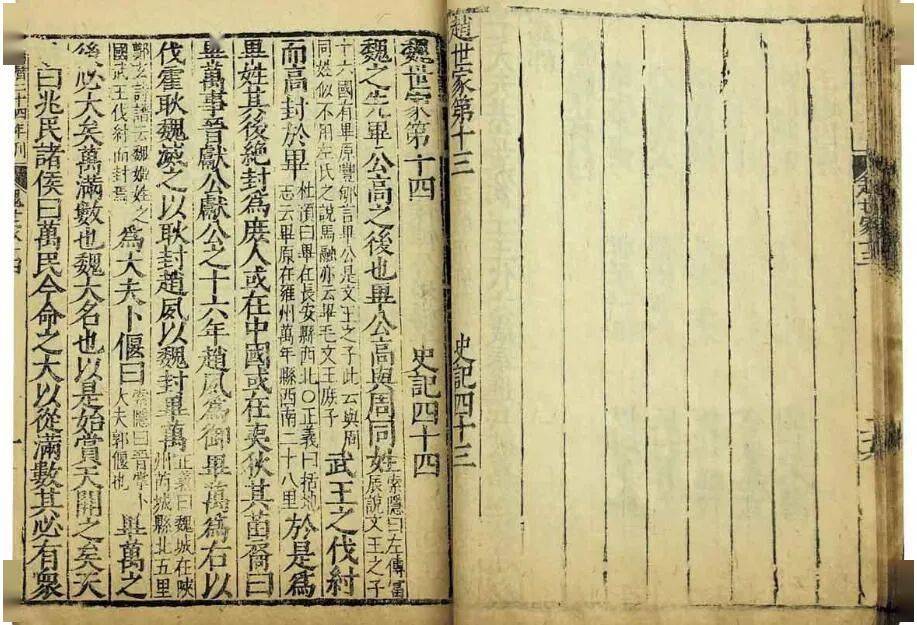 趙世家十三
趙世家第十三 史記四十三
魏世家第十四 史記四十四
魏之先畢公高之後也畢公高與周同姓索隱曰左傳富辰說文王之子
十六國有畢原豐郇言畢公是文王之子此云與周同姓似不用左氏之說馬融亦云畢毛文王庶子武王之伐紂
而高封於畢杜預曰畢在長安縣西北○正義曰括地志云畢原在雍州萬年縣西南二十八里於是爲
畢姓其後絕封爲庶人或在中國或在夷狄其苗裔曰
畢萬事晉獻公獻公之十六年趙夙爲御畢萬爲右以
伐霍耿魏滅之以耿封趙夙以魏封畢萬正義曰魏城在陝州芮城縣北五里
鄭玄詩譜云魏姬姓之國武王伐紂而封焉爲大夫卜偃曰索隱曰晉掌卜大夫郭偃也畢萬之
後必大矣萬滿數也魏大名也以是始賞天開之矣天
曰兆民諸侯曰萬民今命之大以從滿數其必有衆
十四年刊 魏世家十四